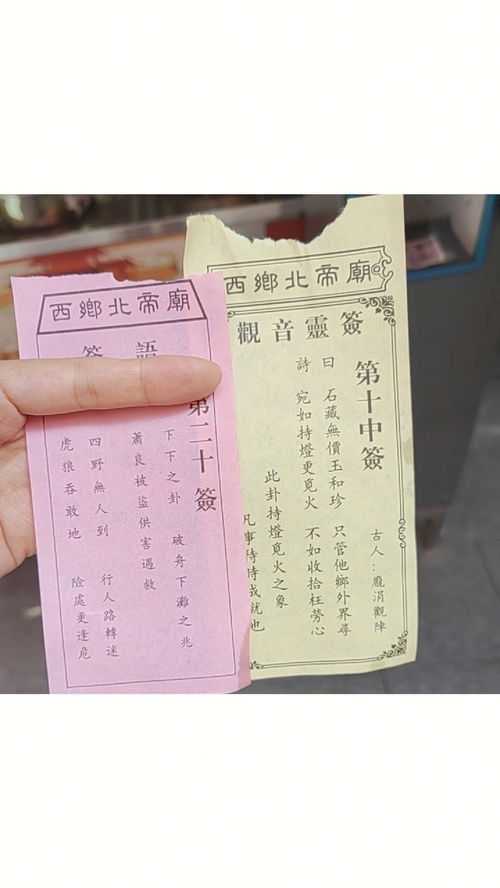 西鄉北帝廟
語
第二十簽
下下之卦 破舟下灘之兆
蕭良被盜供害遇赦
四野無人到 行人路轉迷
虎狼吞敢地 險處更逢危
西鄉北帝廟
觀音靈簽
第十中簽
古人：龐涓觀陣
詩曰
石藏無價玉和珍 只管他鄉外界尋
宛如持燈更覓火 不如收拾枉勞心
此卦持燈覓火之象
凡事待時成就也